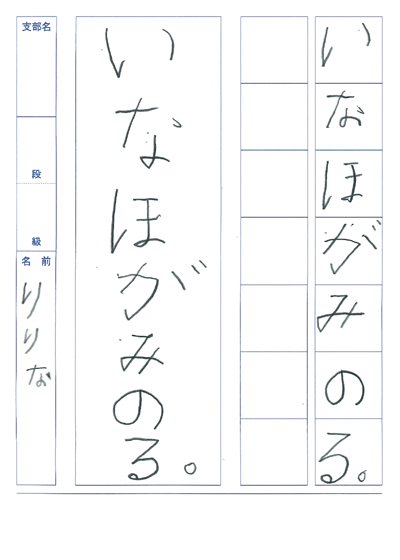 いなほがみのる。
いなほがみのる。
支部名
段
級
名前
りりな